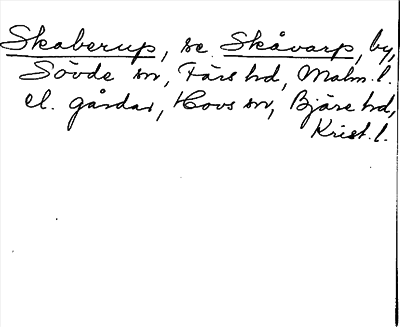 Skaberup, se Skåvarp, by,
Sövde sn, Färs hd, Malm. l.
el. gårdar, Hovs sn, Bjäre hd,
Krist. l.